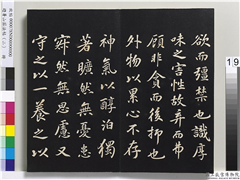 欲而彊禁也識厚
味之害性故弃而弗
顧非貪而後抑也
外物以累心不存
神氣以醇泊獨
著曠然無憂患
寂然無思慮又
守之以一養之以
19